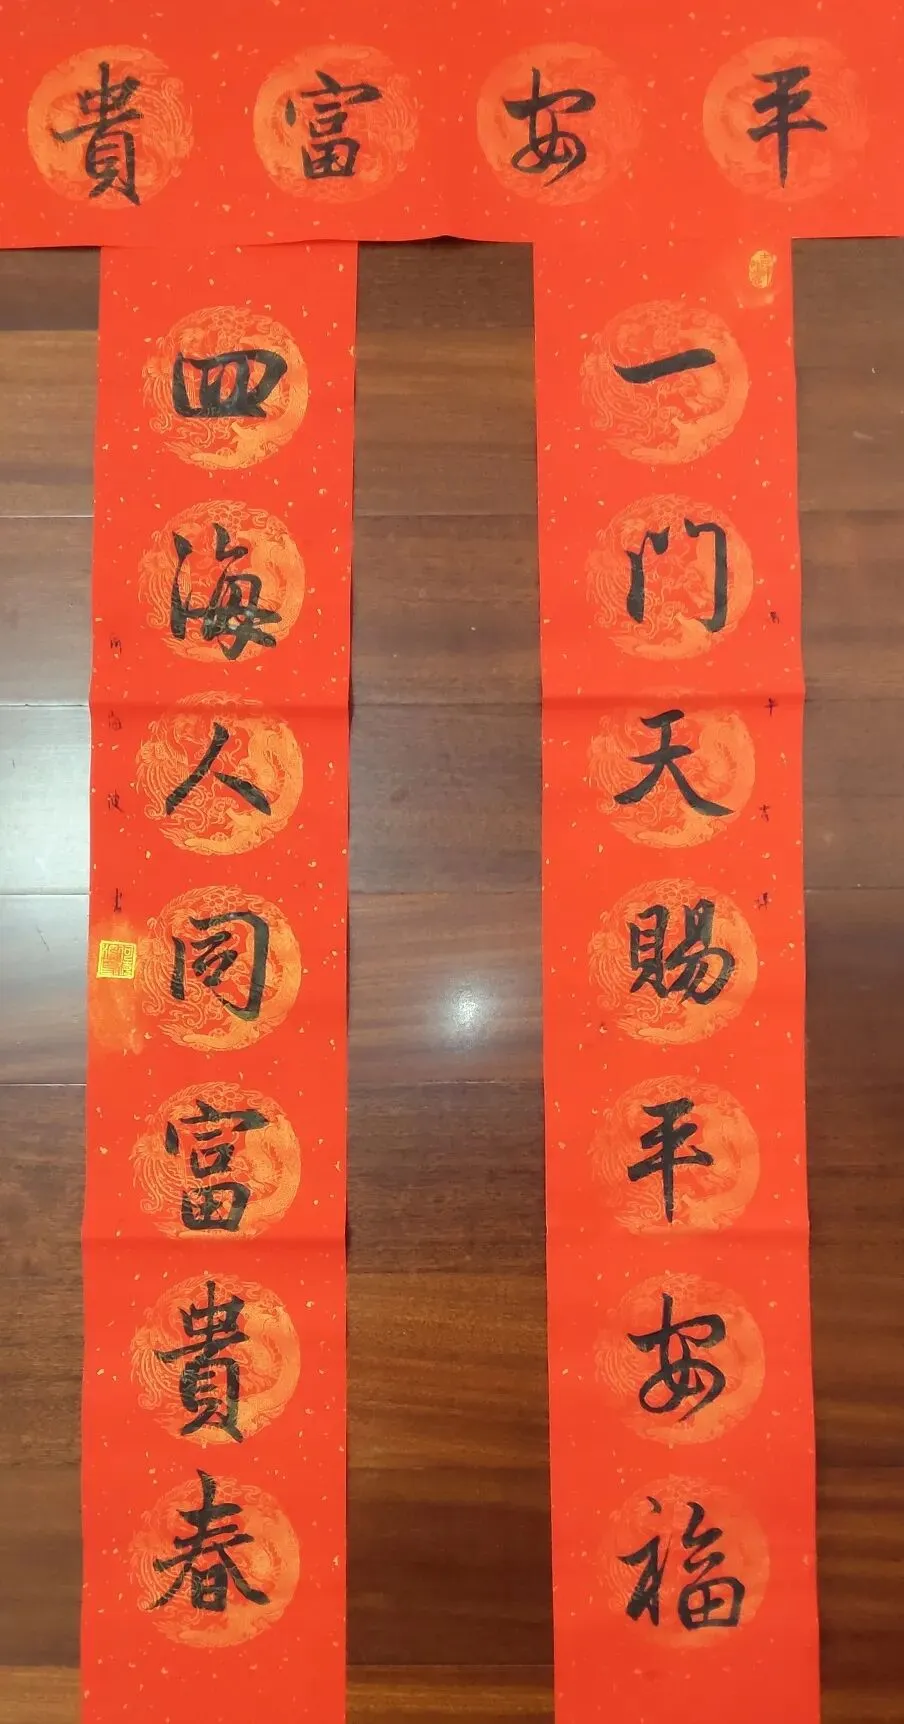 平安富貴
一門天賜平安福
四海人同富貴春
海波書